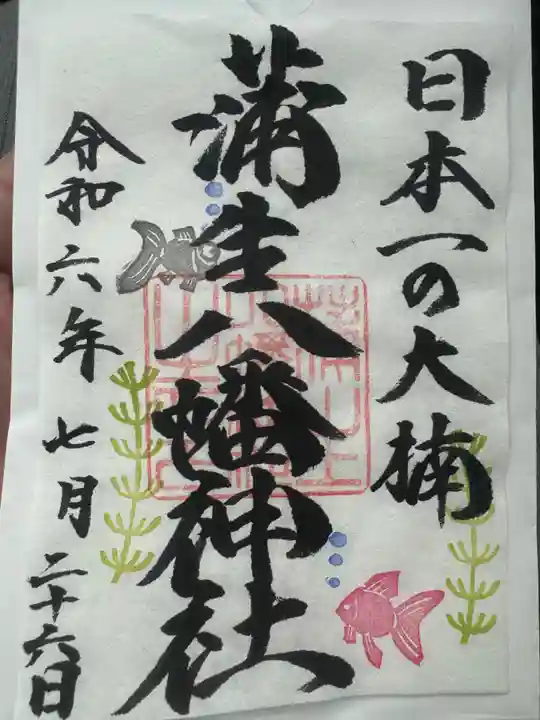 日本一の大楠
蒲生八幡神社
令和六年七月二十六日